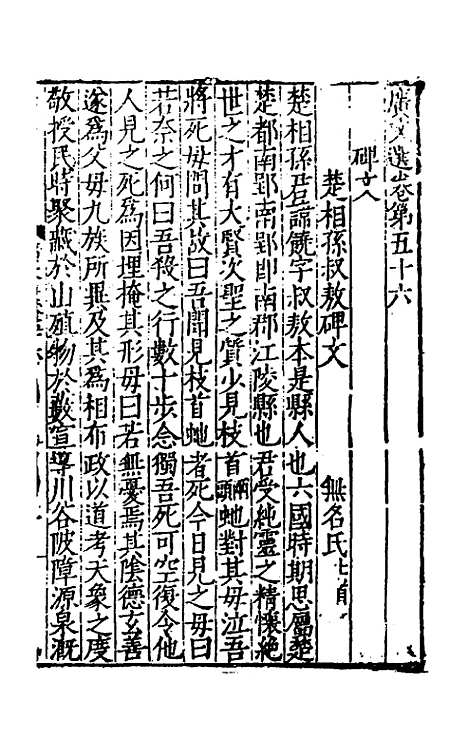 廣文選卷第五十六
碑文
楚相孫叔敖碑文 無名氏七首
楚相孫君諱饒字叔敖本是縣人也六國時期思屬楚
楚都南郢南郢即南郡江陵縣也君受純靈之精懷絶
世之才有大賢次聖之質少見枝首兩頭虵對其母泣吾
將死母問其故曰吾聞見枝首虵者死今日見之母曰
若奈之何曰吾殺之行數十步念獨吾死可空復令他
人見之死爲因埋掩其形母曰若無憂焉其陰德玄善
遂爲父母九族所異及其爲相布政以道考天象之度
敬授民時聚藏於山殖物於藪宣導川谷陂障源泉溉